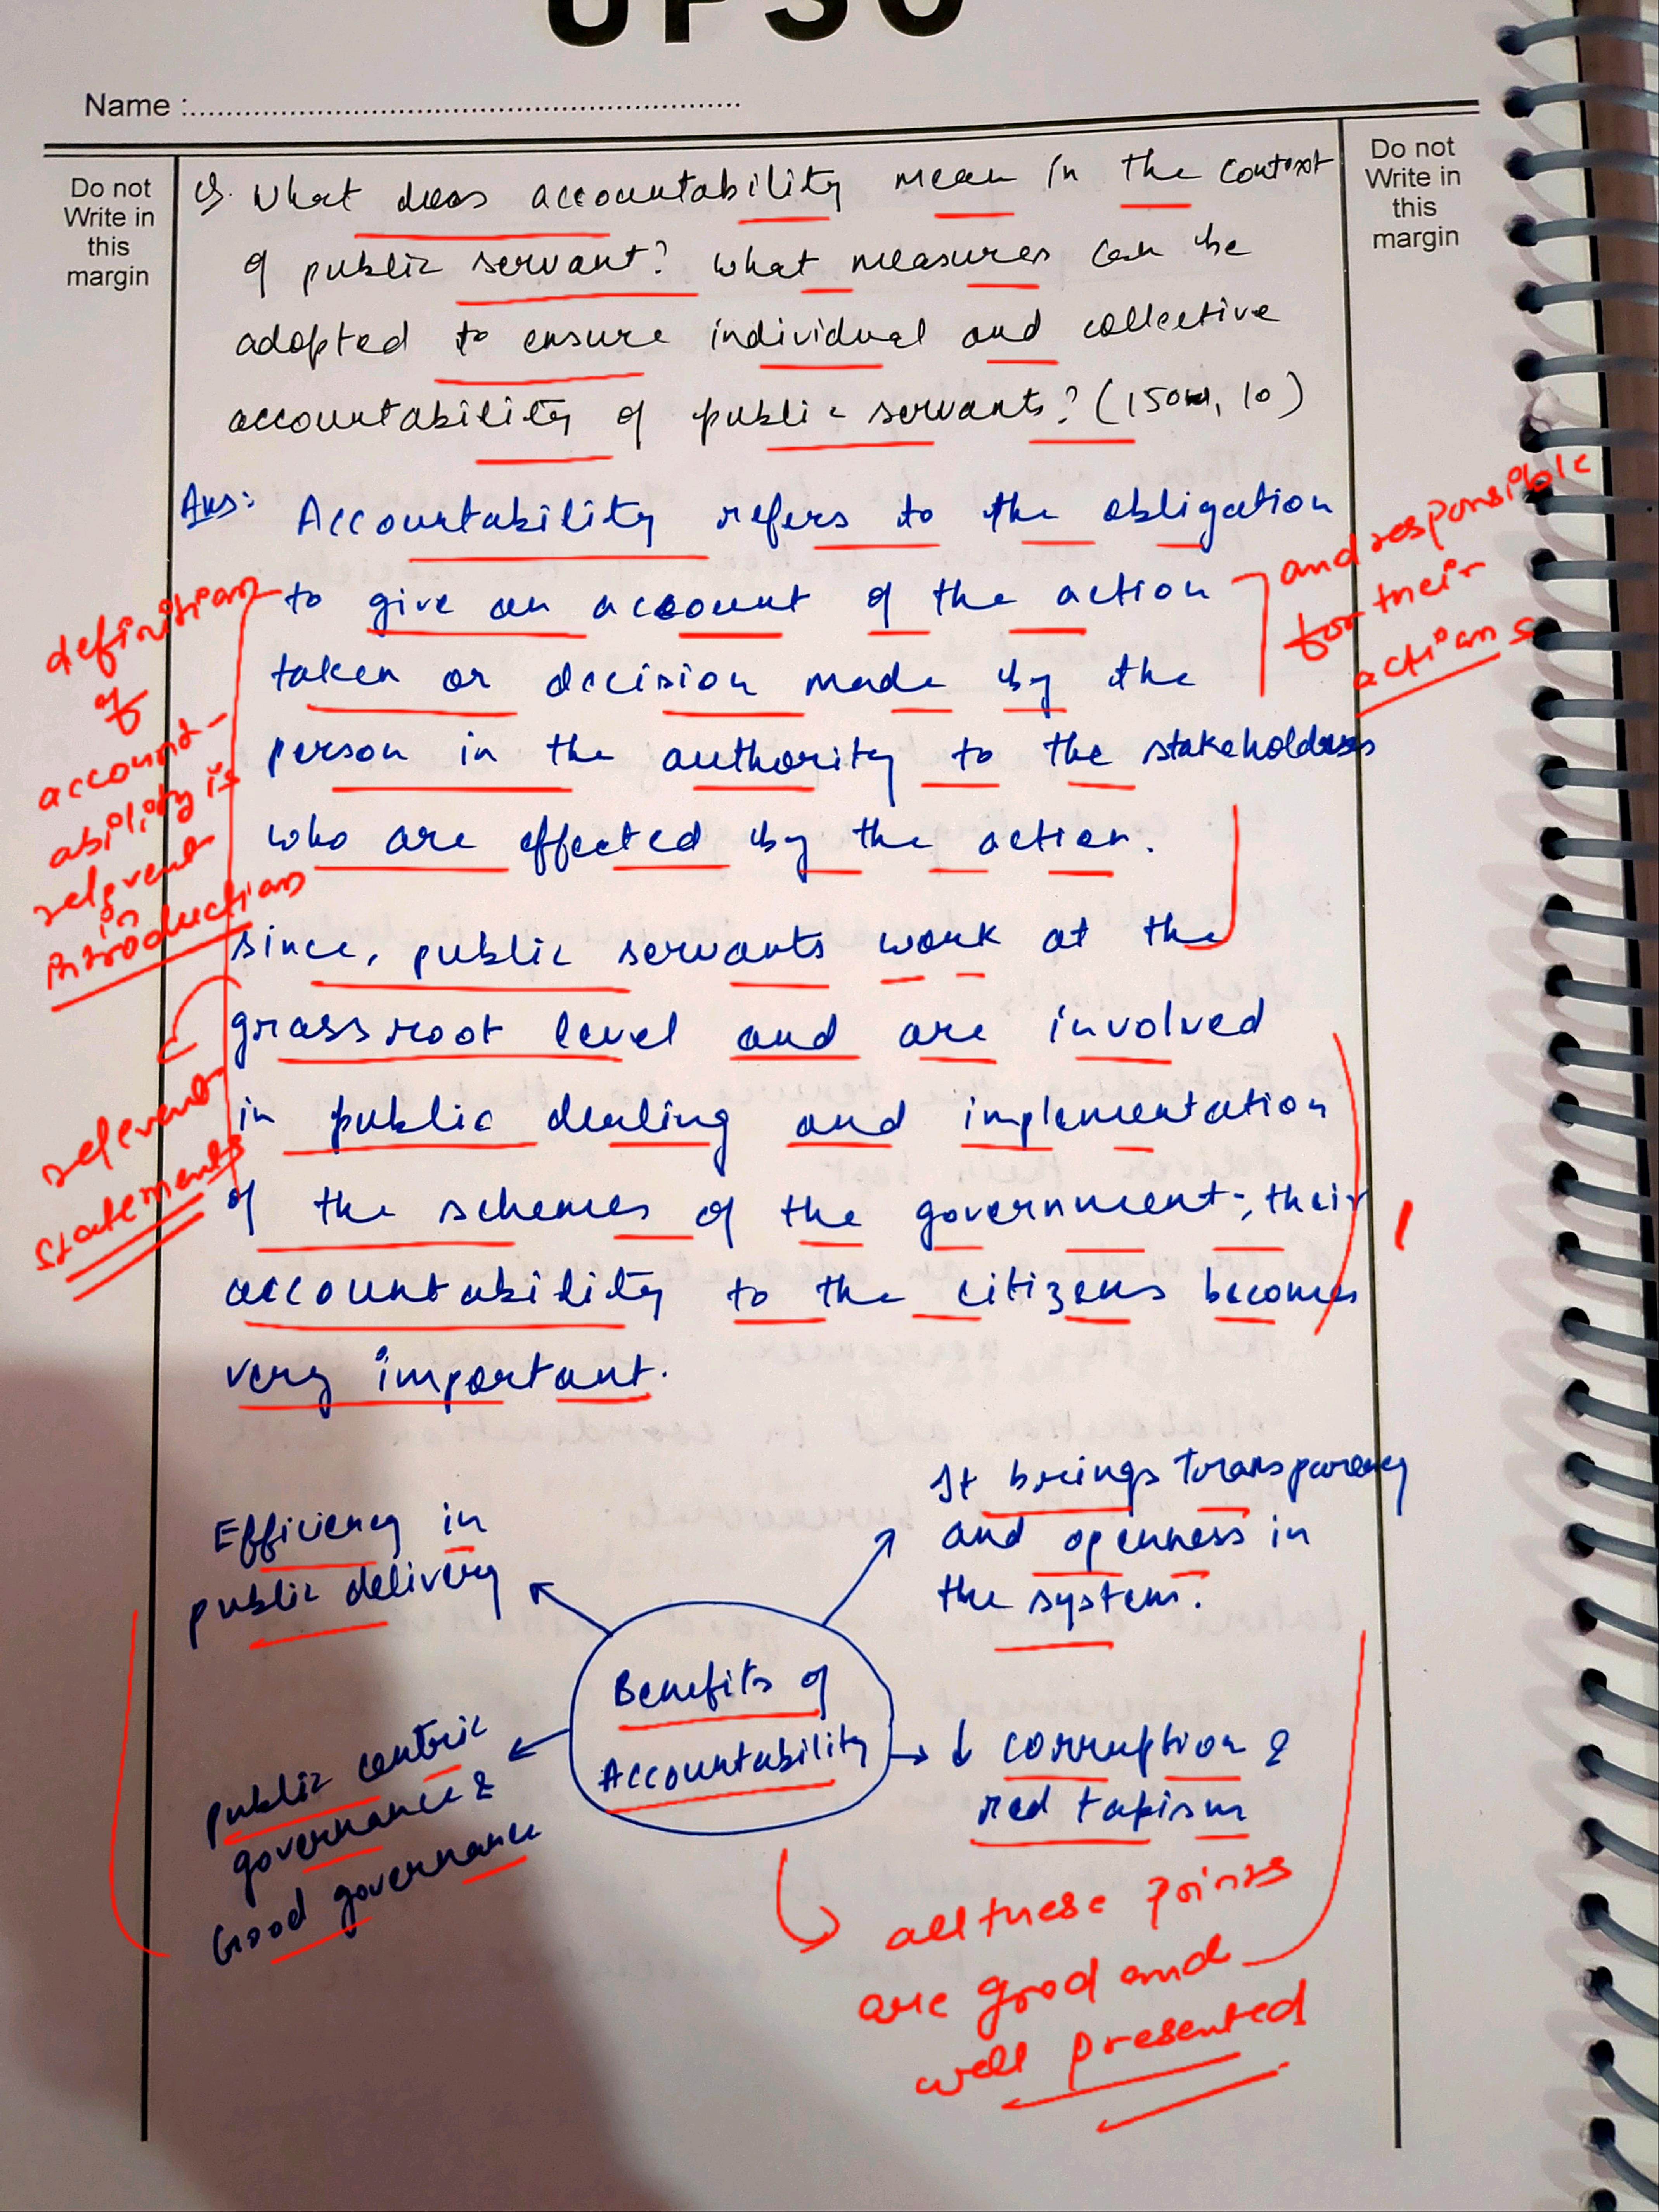 UPSC
Name :
Do not
Write in
this
margin
Do not
Write in
this
margin
Q. What does accountability mean in the context
of public servant? What measures can be
adopted to ensure individual and collective
accountability of public servants? (150w, 10)
Ans: Accountability refers to the obligation
to give an account of the action
taken or decision made by the
person in the authority to the stakeholders
who are effected by the action.
since, public servants work at the
grassroot level and are involved
in public dealing and implementation
of the schemes of the government; their
accountability to the citizens becomes
very important.
and responsible
for their
actions
definition
of
account-
ability is
relevent
in
introduction
relevent
statements
1
Efficiency in
public delivery
It brings transparency
and openness in
the system.
Benefits of
Accountability
Public centric
governance &
Good governance
↓ corruption &
red tapism
all these points
are good and
well presented